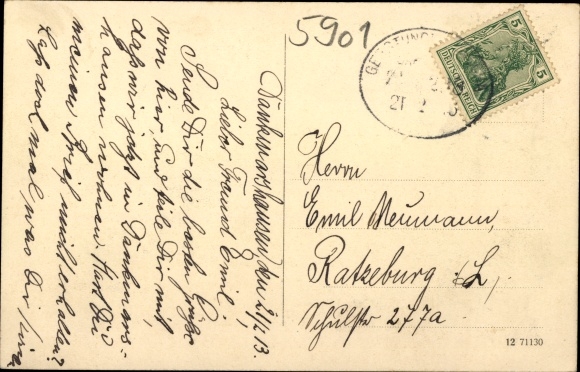 Dankmarshausen den 21/2 13.
Lieber Freund Emil!
Sende Dir die besten Grüße
von hier, und teile Dir mit
daß wir jetzt in Dankmars=
hausen wohnen. Hast Du
meinen Brief nicht erhalten?
Laß doch mal was Dir
5901
GERSTUNGEN
21 2 13
5
5
DEUTSCHES REICH
Herrn
Emil Neumann,
Ratzeburg i. L,
Schulstr 277a
12 71130